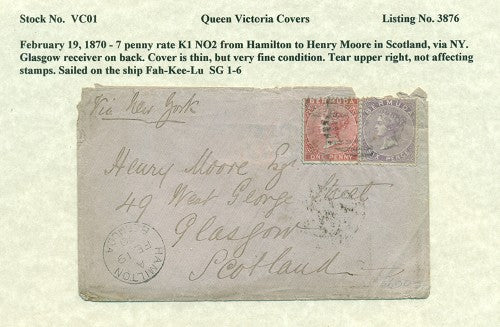 Stock No.  VC01 Queen Victoria Covers Listing No. 3876
February 19, 1870 - 7 penny rate K1 NO2 from Hamilton to Henry Moore in Scotland, via NY.
Glasgow receiver on back. Cover is thin, but very fine condition. Tear upper right, not affecting
stamps. Sailed on the ship Fah-Kee-Lu  SG 1-6
Via New York
BERMUDA
ONE PENNY
BERMUDA
SIX PENCE
Henry Moore Esq
49 West George Street
Glasgow
Scotland
HAMILTON
A
FE 19
BERMUDA